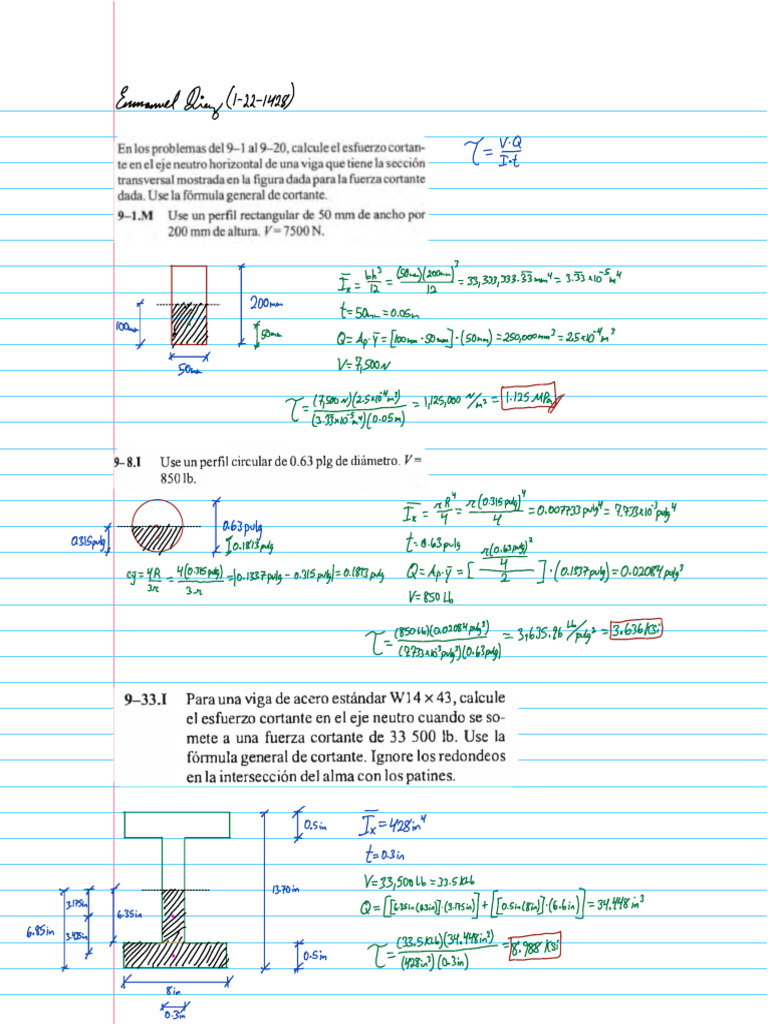 Emmanuel Diaz (1-22-1428)
En los problemas del 9–1 al 9–20, calcule el esfuerzo cortan-
te en el eje neutro horizontal de una viga que tiene la sección
transversal mostrada en la figura dada para la fuerza cortante
dada. Use la fórmula general de cortante.
τ = V·Q / I·t
9–1.M Use un perfil rectangular de 50 mm de ancho por
200 mm de altura. V = 7500 N.
Ix = bh³/12 = (50mm)(200mm)³/12 = 33,333,333.33 mm⁴ = 3.33×10⁻⁵ m⁴
200mm
t = 50mm = 0.05m
100mm
50mm
Q = Ap·ȳ = [100mm·50mm]·(50mm) = 250,000mm³ = 2.5×10⁻⁴ m³
V = 7,500N
50mm
τ = (7,500N)(2.5×10⁻⁴m³) / (3.33×10⁻⁵m⁴)(0.05m) = 1,125,000 N/m² = 1.125 MPa
9–8.I Use un perfil circular de 0.63 plg de diámetro. V =
850 lb.
Ix = πR⁴/4 = π(0.315pulg)⁴/4 = 0.007733 pulg⁴ = 7.733×10⁻³ pulg⁴
0.63pulg
0.315pulg
0.1813pulg
t = 0.63pulg
cg = 4R/3π = 4(0.315pulg)/3·π = |0.1337pulg − 0.315pulg| = 0.1813pulg
Q = Ap·ȳ = [π(0.63pulg)²/4 / 2]·(0.1337pulg) = 0.02084pulg³
V = 850 Lb
τ = (850Lb)(0.02084pulg³) / (7.733×10⁻³pulg⁴)(0.63pulg) = 3,635.96 Lb/pulg² = 3.636 Ksi
9–33.I Para una viga de acero estándar W14 × 43, calcule
el esfuerzo cortante en el eje neutro cuando se so-
mete a una fuerza cortante de 33 500 lb. Use la
fórmula general de cortante. Ignore los redondeos
en la intersección del alma con los patines.
0.5in
Ix = 428in⁴
t = 0.3in
13.70in
V = 33,500Lb = 33.5KLb
3.175in
6.35in
Q = [[6.35in(0.3in)]·(3.175in)] + [[0.5in(8in)]·(6.6in)] = 34.448in³
6.85in
3.425in
0.5in
τ = (33.5KLb)(34.448in³) / (428in⁴)(0.3in) = 8.988 Ksi
8in
0.3in